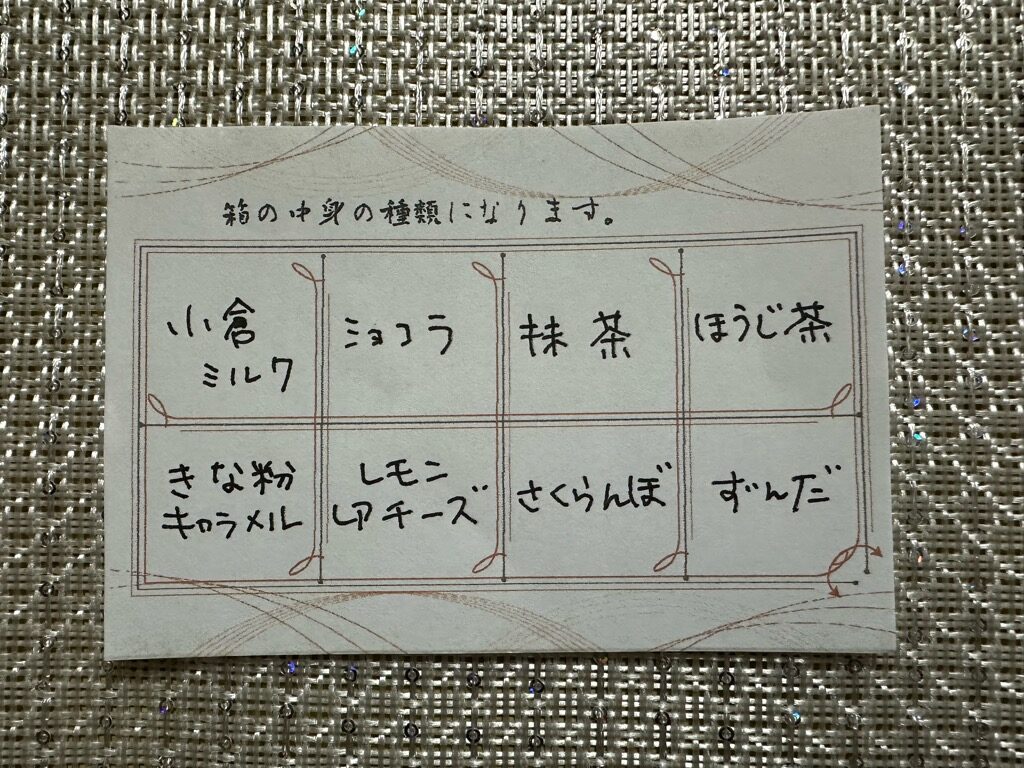 箱の中身の種類になります。
小倉
ミルク
ショコラ
抹茶
ほうじ茶
きな粉
キャラメル
レモン
レアチーズ
さくらんぼ
ずんだ